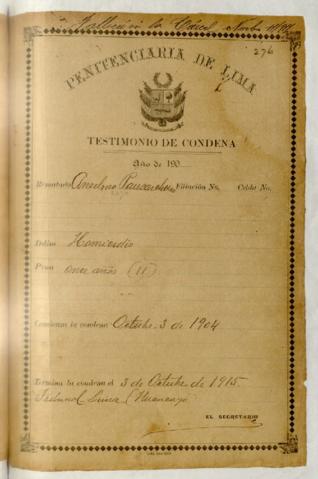 Falleció en la Cárcel Novbre
276
PENITENCIARIA DE LIMA
TESTIMONIO DE CONDENA
Año de 190
Rematado Anselmo Filiación No. Celda No.
Delito Homicidio
Pena once años (11)
Comienza la condena Octubre 3 de 1904
Termina la condena el 3 de Octubre de 1915.
Tribunal Huancayo
EL SECRETARIO